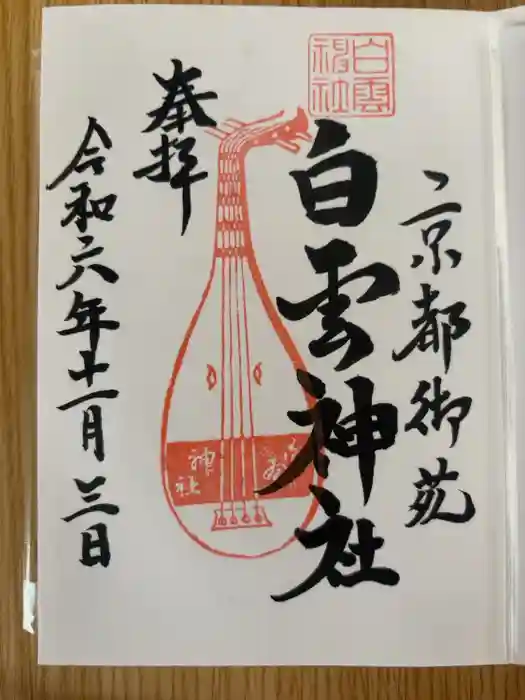 京都御苑
白雲神社
白雲
神社
奉拝
神社
令和六年十一月三日